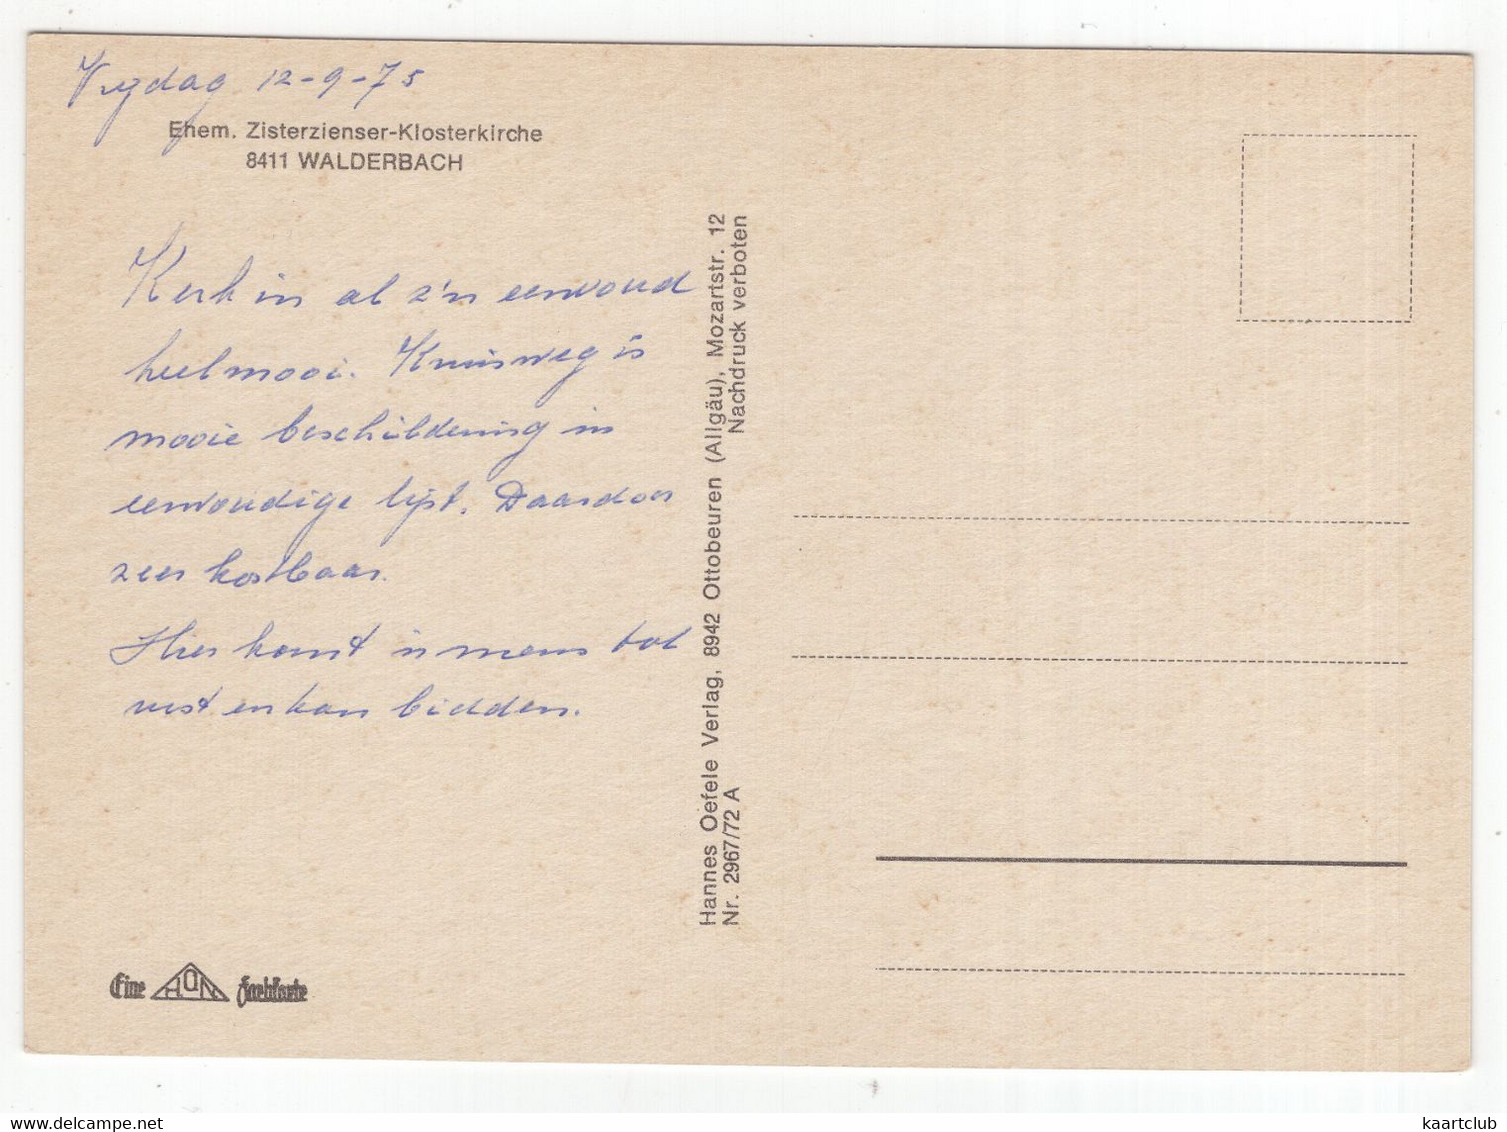 Vrijdag 12-9-75
Ehem. Zisterzienser-Klosterkirche
8411 WALDERBACH
Kerk in al z'n eenvoud
heel mooi. Kruisweg is
mooie beschildering in
eenvoudige lijst. Daardoor
zeer kostbaar.
Hier komt 'n mens tot
rust en kan bidden.
Hannes Oefele Verlag, 8942 Ottobeuren (Allgäu), Mozartstr. 12
Nr. 2967/72 A Nachdruck verboten
Eine HON Farbkarte
kaartclub
www.delcampe.net